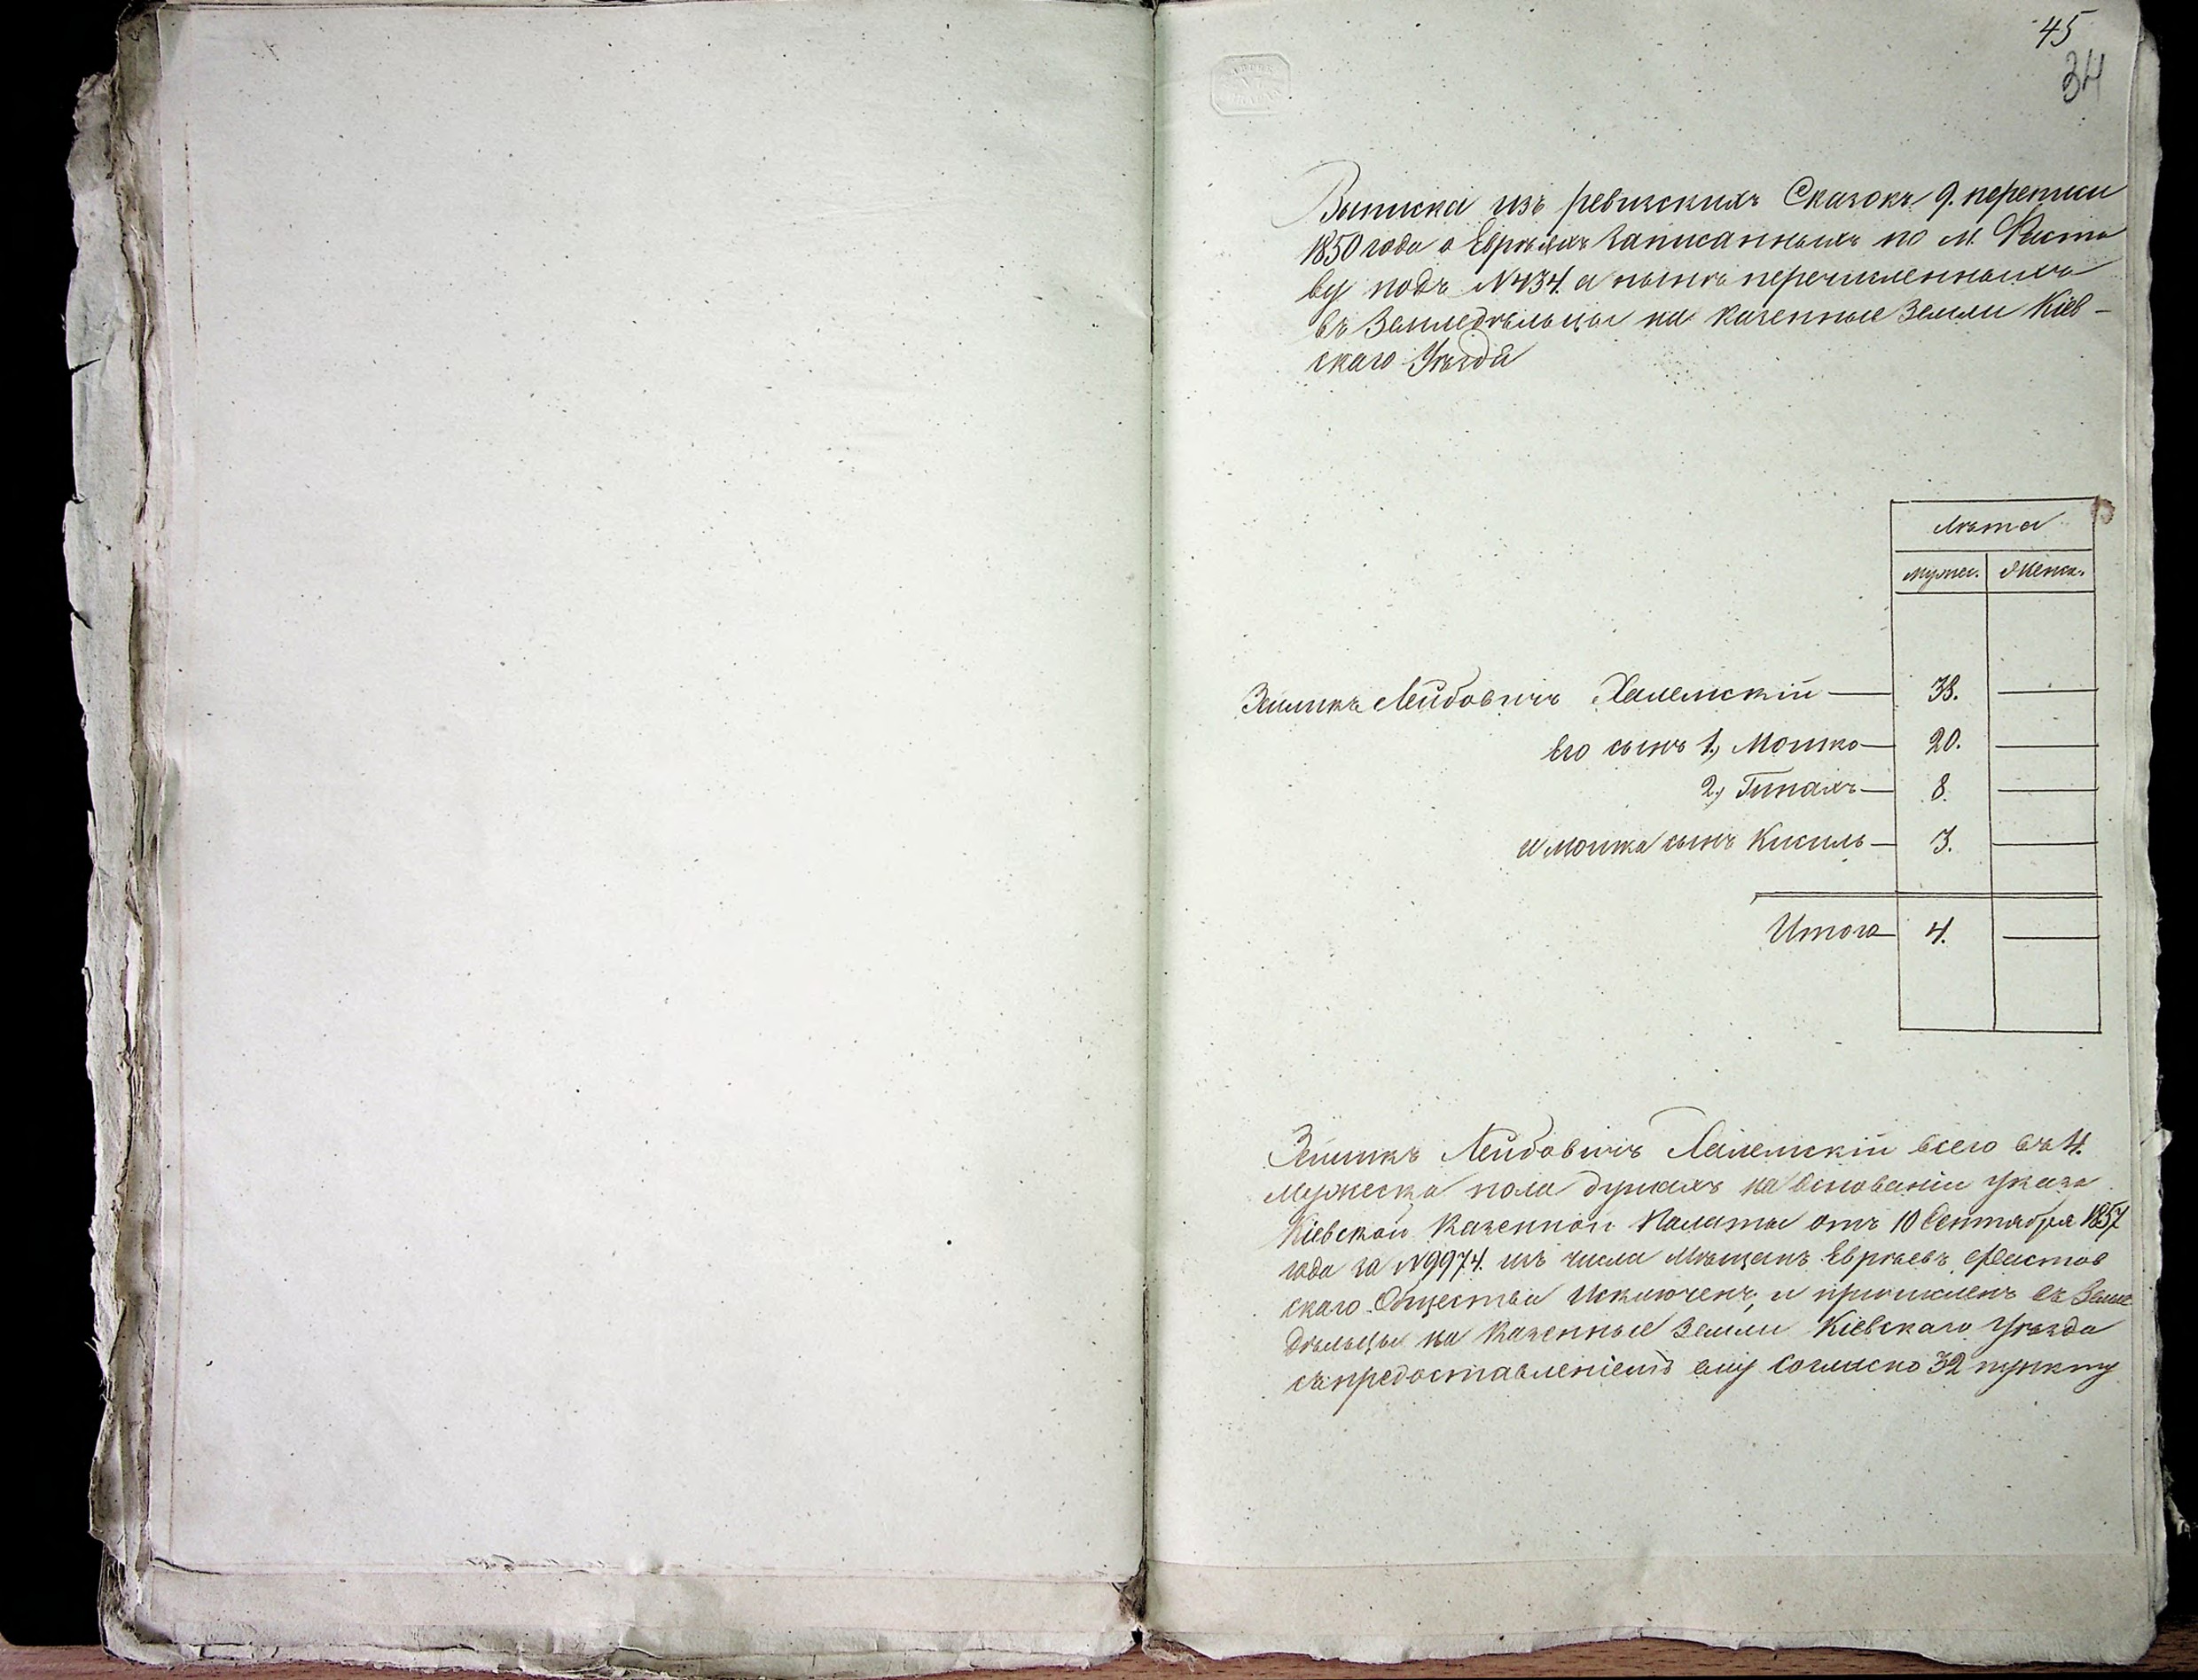 45
34
Выписка изъ ревизскихъ Сказокъ 9. переписи
1850 года о Евреяхъ записанныхъ по м. Фасто
ву подъ №434. а нынѣ перечисленныхъ
въ Земледѣльцы на казенные Земли Кіев-
скаго Уѣзда
Лѣта
мужес. Женск.
Зейликъ Лейбовичъ Халемскій — 38. —
Его сынъ 1, Мошко — 20. —
2, Гипахъ — 8. —
и Мошка сынъ Кисиль — 3. —
Итого — 4. —
Зейликъ Лейбовичъ Халемскій всего въ 4.
Мужеска пола душахъ на основаніи указа
Кіевской Казенной Палаты отъ 10 Сентября 1857
года за №9974. изъ числа Мѣщанъ Евреевъ Фастов
скаго Общества Исключенъ, и причисленъ въ Земле
дѣльцы на Казенные Земли Кіевскаго Уѣзда
съ предоставленіемъ ему Согласно 32 пункту